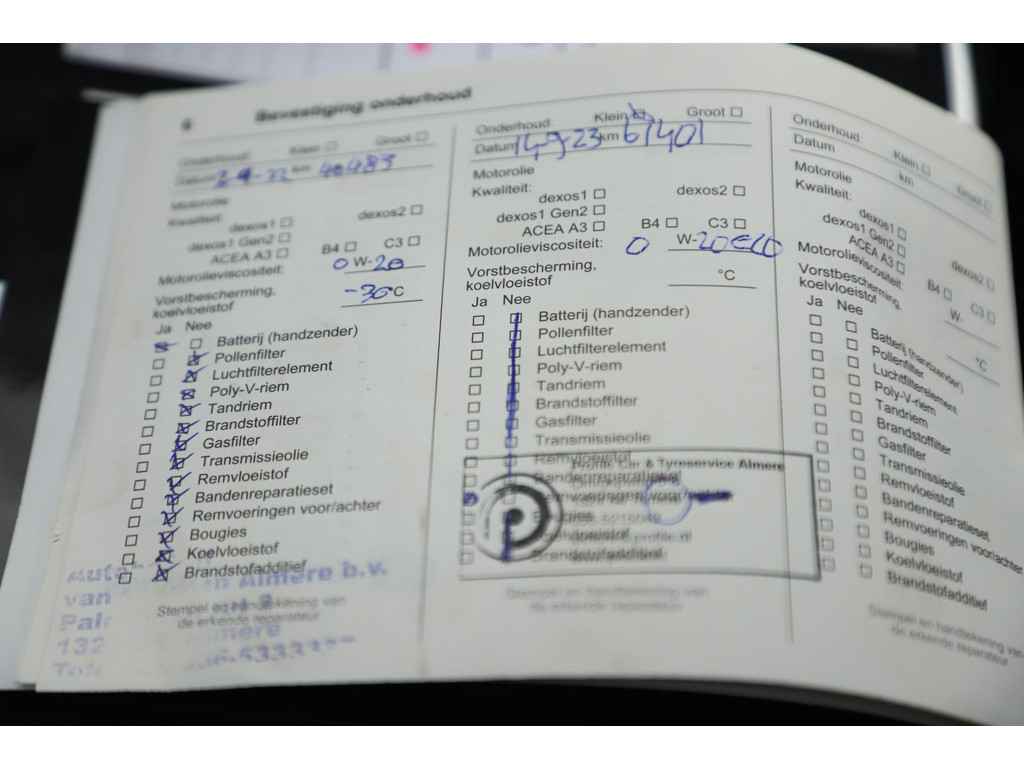 6 Bevestiging onderhoud
Onderhoud Klein □ Groot □
Datum km 40483
Motorolie
Kwaliteit:
dexos1 □ dexos2 □
dexos1 Gen2 □
ACEA A3 □ B4 □ C3 □
Motorolieviscositeit: 0 W-20
Vorstbescherming, koelvloeistof -30 °C
Ja Nee
Batterij (handzender)
Pollenfilter
Luchtfilterelement
Poly-V-riem
Tandriem
Brandstoffilter
Gasfilter
Transmissieolie
Remvloeistof
Bandenreparatieset
Remvoeringen voor/achter
Bougies
Koelvloeistof
Brandstofadditief
Auto Almere b.v.
van
132
Stempel en handtekening van
de erkende reparateur
Onderhoud Klein Groot □
Datum 14-9-23 km 61401
Motorolie
Kwaliteit:
dexos1 □ dexos2 □
dexos1 Gen2 □
ACEA A3 □ B4 □ C3 □
Motorolieviscositeit: 0 W-20
Vorstbescherming,
koelvloeistof °C
Ja Nee
Batterij (handzender)
Pollenfilter
Luchtfilterelement
Poly-V-riem
Tandriem
Brandstoffilter
Gasfilter
Transmissieolie
Remvloeistof
Profile Car & Tyreservice Almere
Bandenreparatieset
Remvoeringen voor/achter
Bougies
Koelvloeistof
Brandstofadditief
Stempel en handtekening van
de erkende reparateur
Onderhoud Klein □ Groot □
Datum km
Motorolie
Kwaliteit:
dexos1 □ dexos2 □
dexos1 Gen2 □
ACEA A3 □ B4 □ C3 □
Motorolieviscositeit: W-
Vorstbescherming,
koelvloeistof °C
Ja Nee
Batterij (handzender)
Pollenfilter
Luchtfilterelement
Poly-V-riem
Tandriem
Brandstoffilter
Gasfilter
Transmissieolie
Remvloeistof
Bandenreparatieset
Remvoeringen voor/achter
Bougies
Koelvloeistof
Brandstofadditief
Stempel en handtekening van
de erkende reparateur